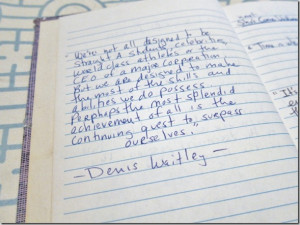 We're not all designed to be
straight A students, celebrities,
world class athletes or the
CEO of a major corporation.
But we are designed to make
the most of the skills and
abilities we do possess
Perhaps the most splendid
achievement of all is the
continuing quest to surpass
ourselves.
- Denis Waitley -